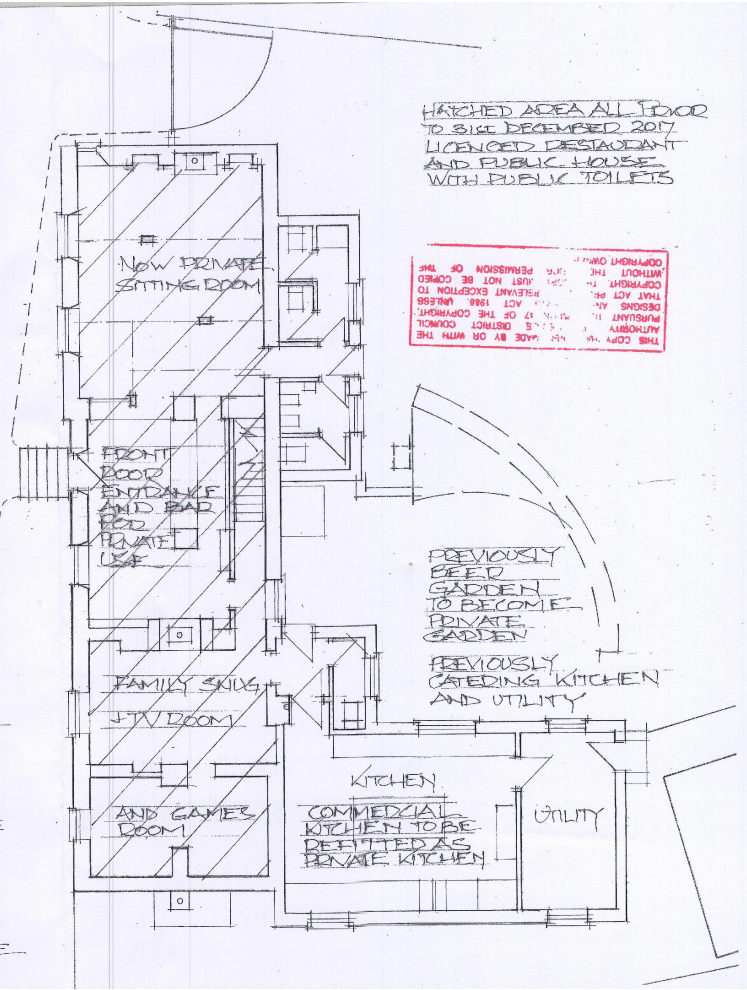 HATCHED AREA ALL PRIOR
TO 31ST DECEMBER 2017
LICENCED RESTAURANT
AND PUBLIC HOUSE
WITH PUBLIC TOILETS
THIS COPY HAS BEEN MADE BY OR WITH THE
AUTHORITY DISTRICT COUNCIL
PURSUANT 17 OF THE COPYRIGHT,
DESIGNS AN ACT 1988. UNLESS
THAT ACT RELEVANT EXCEPTION TO
COPYRIGHT, TH COPY MUST NOT BE COPIED
WITHOUT THE PERMISSION OF THE
COPYRIGHT OWNER
NOW PRIVATE
SITTING ROOM
FRONT
DOOR
ENTRANCE
AND BAR
FOR
PRIVATE
USE
PREVIOUSLY
BEER
GARDEN
TO BECOME
PRIVATE
GARDEN
PREVIOUSLY
CATERING KITCHEN
AND UTILITY
FAMILY SNUG
+TV ROOM
AND GAMES
ROOM
KITCHEN
COMMERCIAL
KITCHEN TO BE
REFITTED AS
PRIVATE KITCHEN
UTILITY